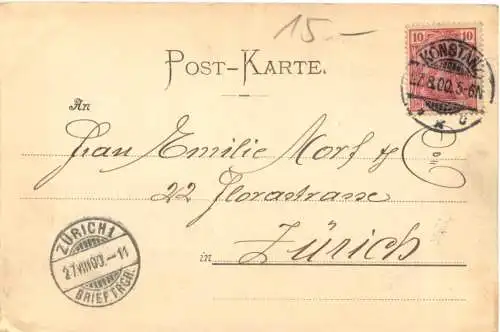 15.-
10 10
KONSTANZ
27.8.00.5-6N
POST-KARTE.
An
Frau Emilie Morf & Co
22 Florastrasse
in Zürich
ZÜRICH 1
27.VIII.00.-11
BRIEFTRGR.